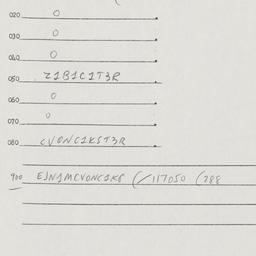 020 0
030 0
040 0
050 Z1B1C1T3R
060 0
070 0
080 CVONC1KST3R
900 (/117050 (288